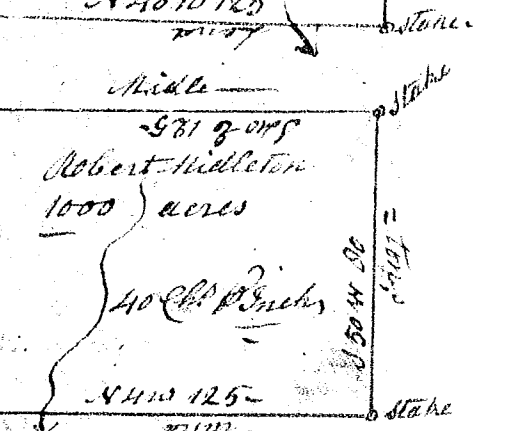 N 40 W 125
stone.
Midle
Stake
S 40 E 125
Robert Midleton
1000 acres
40 Chs P Inch
S 50 W 80
N 40 W 125
Stake